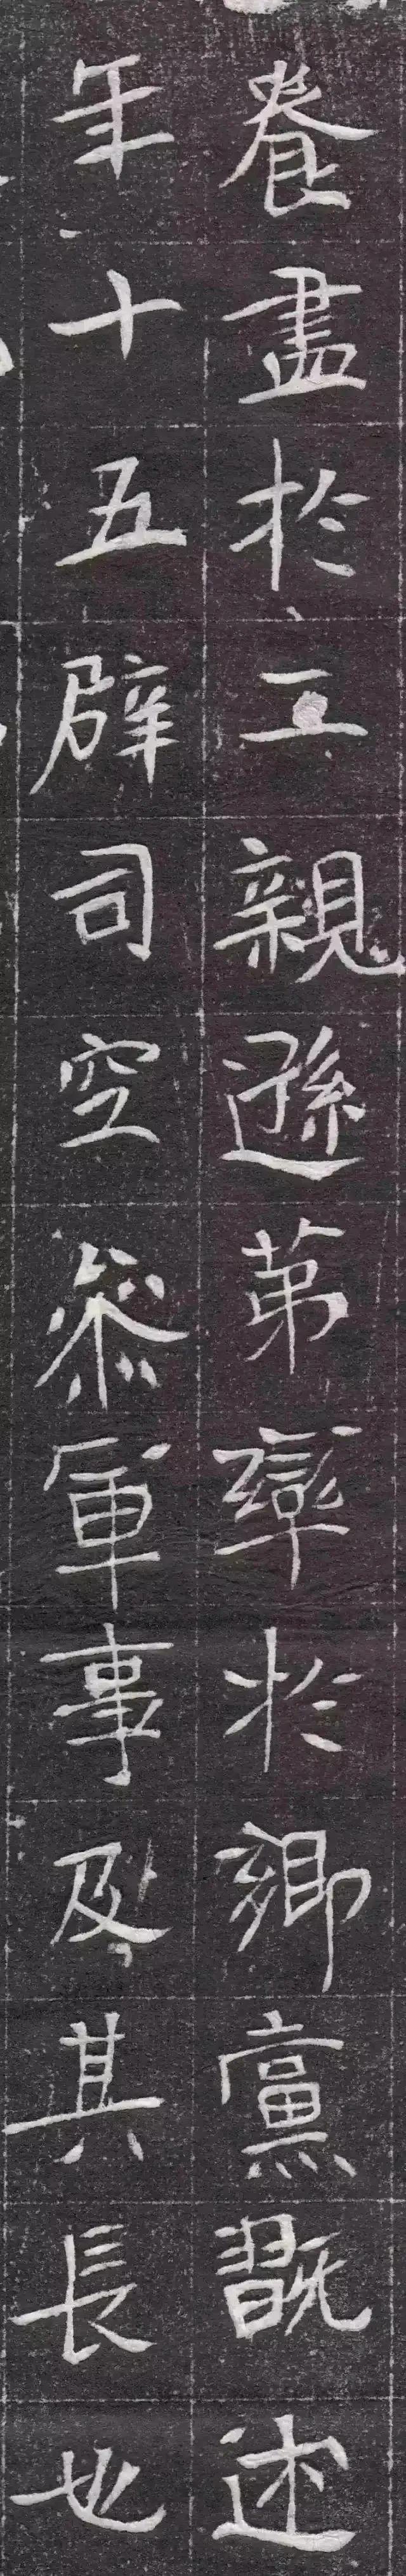 養盡於二親遜第率於鄉黨翫述
年十五辟司空參軍事及其長也